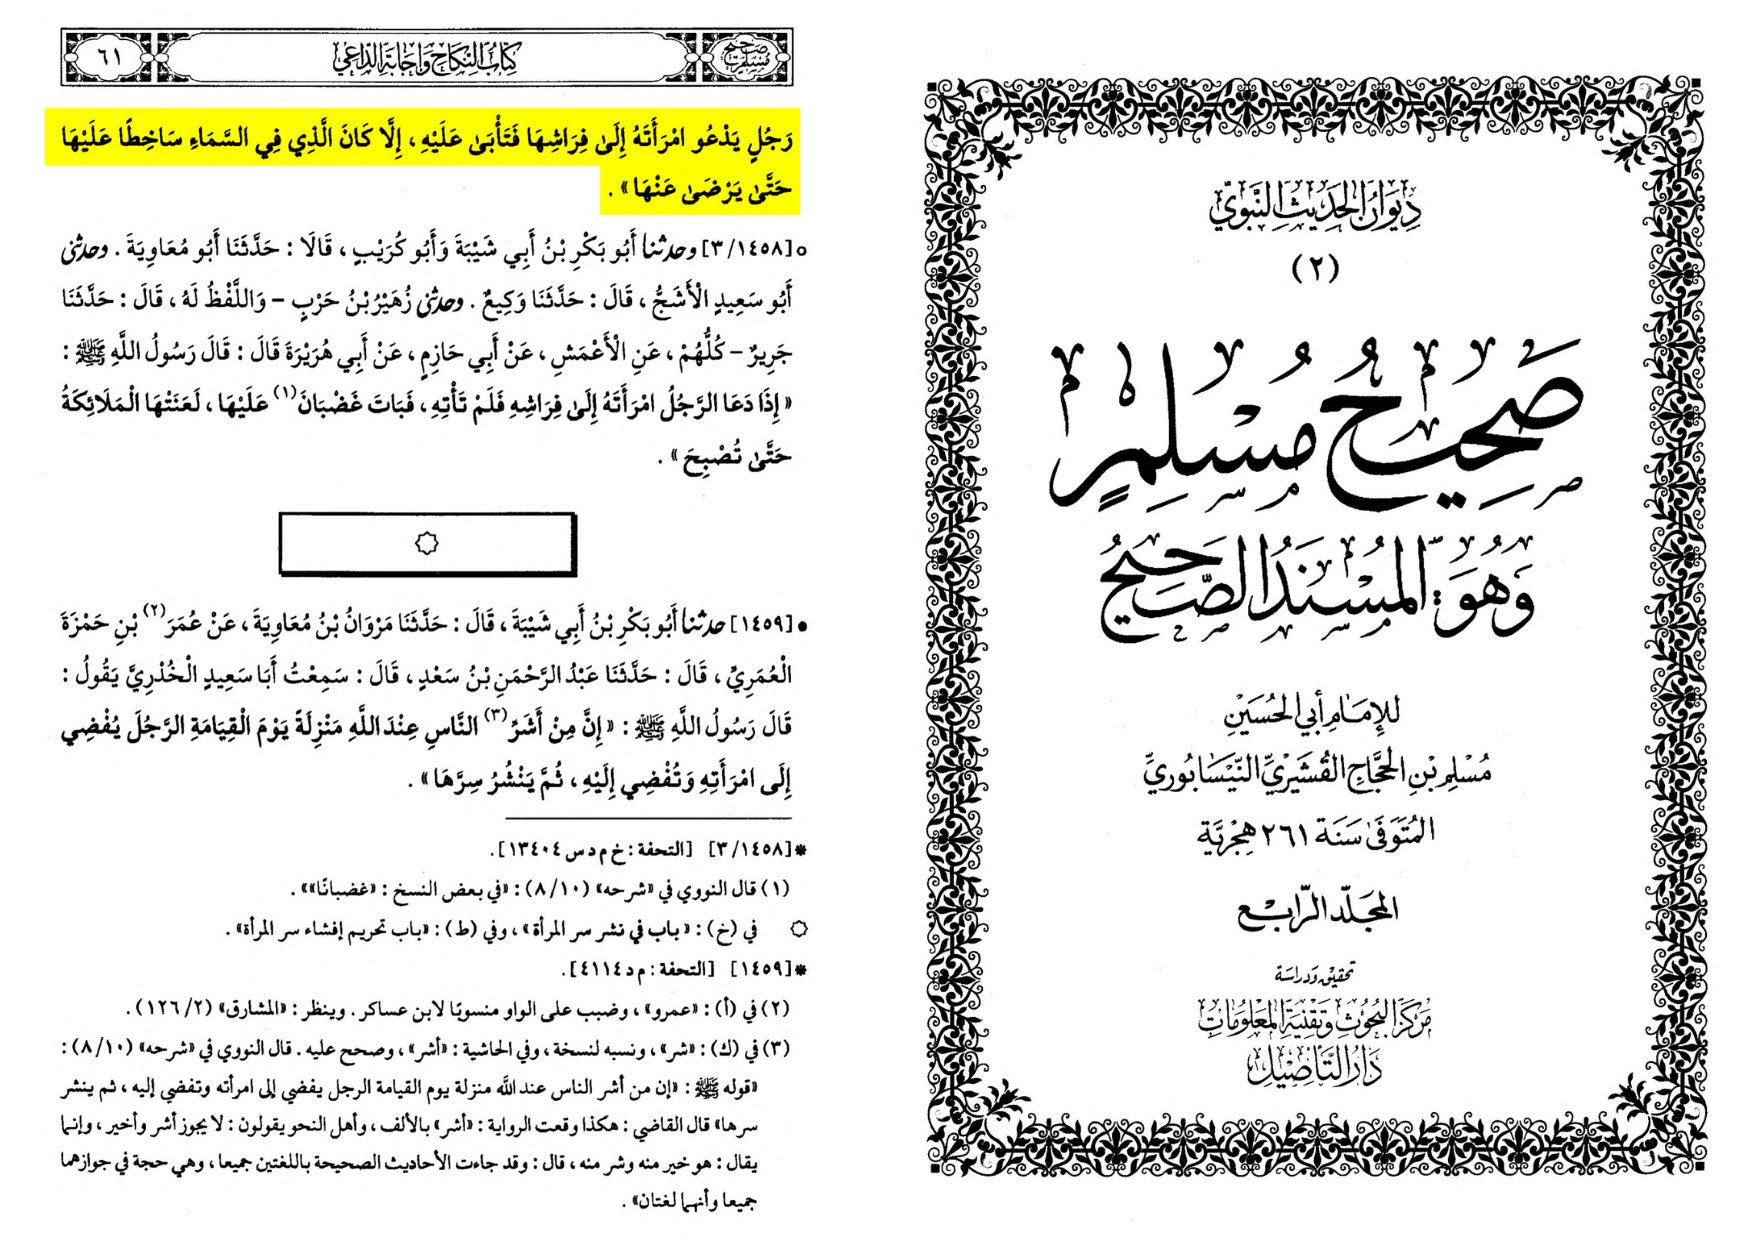 ديوان الحديث النبوي
(٢)
صَحِيحُ مُسْلِمٍ
وَهُوَ: المُسْنَدُ الصَّحِيحُ
للإمام أبي الحُسَيْن
مُسْلِم بْنِ الحَجَّاجِ القُشَيْرِيِّ النَّيْسَابُورِيِّ
المُتَوَفَّى سَنَة ٢٦١ هِجْرِيَّة
المجَلّد الرّابع
تحقيق ودراسة
مَرْكَزُ البُحُوثِ وَتَقْنِيَةِ المَعْلُومَاتِ
دَارُ التَّأْصِيلِ
صحيح مسلم
كتاب النكاح وإجابة الداعي
٦١
رَجُلٍ يَدْعُو امْرَأَتَهُ إِلَىٰ فِرَاشِهَا فَتَأْبَىٰ عَلَيْهِ ، إِلَّا كَانَ الَّذِي فِي السَّمَاءِ سَاخِطًا عَلَيْهَا
حَتَّىٰ يَرْضَىٰ عَنْهَا» .
○[٣/١٤٥٨] وحدثنا أَبُو بَكْرِ بْنُ أَبِي شَيْبَةَ وَأَبُو كُرَيْبٍ ، قَالَا : حَدَّثَنَا أَبُو مُعَاوِيَةَ . وحدثني
أَبُو سَعِيدٍ الْأَشَجُّ ، قَالَ : حَدَّثَنَا وَكِيعٌ . وحدثني زُهَيْرُ بْنُ حَرْبٍ – وَاللَّفْظُ لَهُ ، قَالَ : حَدَّثَنَا
جَرِيرٌ – كُلُّهُمْ ، عَنِ الْأَعْمَشِ ، عَنْ أَبِي حَازِمٍ ، عَنْ أَبِي هُرَيْرَةَ قَالَ : قَالَ رَسُولُ اللَّهِ ﷺ :
« إِذَا دَعَا الرَّجُلُ امْرَأَتَهُ إِلَىٰ فِرَاشِهِ فَلَمْ تَأْتِهِ ، فَبَاتَ غَضْبَانَ(١) عَلَيْهَا ، لَعَنَتْهَا الْمَلَائِكَةُ
حَتَّىٰ تُصْبِحَ » .
●[١٤٥٩] حدثنا أَبُو بَكْرِ بْنُ أَبِي شَيْبَةَ ، قَالَ : حَدَّثَنَا مَرْوَانُ بْنُ مُعَاوِيَةَ ، عَنْ عُمَرَ(٢) بْنِ حَمْزَةَ
الْعُمَرِيِّ ، قَالَ : حَدَّثَنَا عَبْدُ الرَّحْمَنِ بْنُ سَعْدٍ ، قَالَ : سَمِعْتُ أَبَا سَعِيدٍ الْخُدْرِيَّ يَقُولُ :
قَالَ رَسُولُ اللَّهِ ﷺ : « إِنَّ مِنْ أَشَرِّ(٣) النَّاسِ عِنْدَ اللَّهِ مَنْزِلَةً يَوْمَ الْقِيَامَةِ الرَّجُلَ يُفْضِي
إِلَى امْرَأَتِهِ وَتُفْضِي إِلَيْهِ ، ثُمَّ يَنْشُرُ سِرَّهَا » .
*[٣/١٤٥٨] [التحفة : خ م د س ١٣٤٠٤].
(١) قال النووي في «شرحه» (١٠/ ٨) : «في بعض النسخ : «غضبانًا»» .
۞ في (خ) : «باب في نشر سر المرأة» ، وفي (ط) : «باب تحريم إفشاء سر المرأة» .
*[١٤٥٩] [التحفة : م د ٤١١٤].
(٢) في (أ) : «عمرو» ، وضبب على الواو منسوبًا لابن عساكر . وينظر : «المشارق» (٢/ ١٢٦) .
(٣) في (ك) : «شر» ، ونسبه لنسخة ، وفي الحاشية : «أشر» ، وصحح عليه . قال النووي في «شرحه» (١٠/ ٨) :
«قوله ﷺ : «إن من أشر الناس عند الله منزلة يوم القيامة الرجل يفضي إلى امرأته وتفضي إليه ، ثم ينشر
سرها» قال القاضي : هكذا وقعت الرواية : «أشر» بالألف ، وأهل النحو يقولون : لا يجوز أشر وأخير ، وإنما
يقال : هو خير منه وشر منه ، قال : وقد جاءت الأحاديث الصحيحة باللغتين جميعا ، وهي حجة في جوازهما
جميعا وأنهما لغتان» .